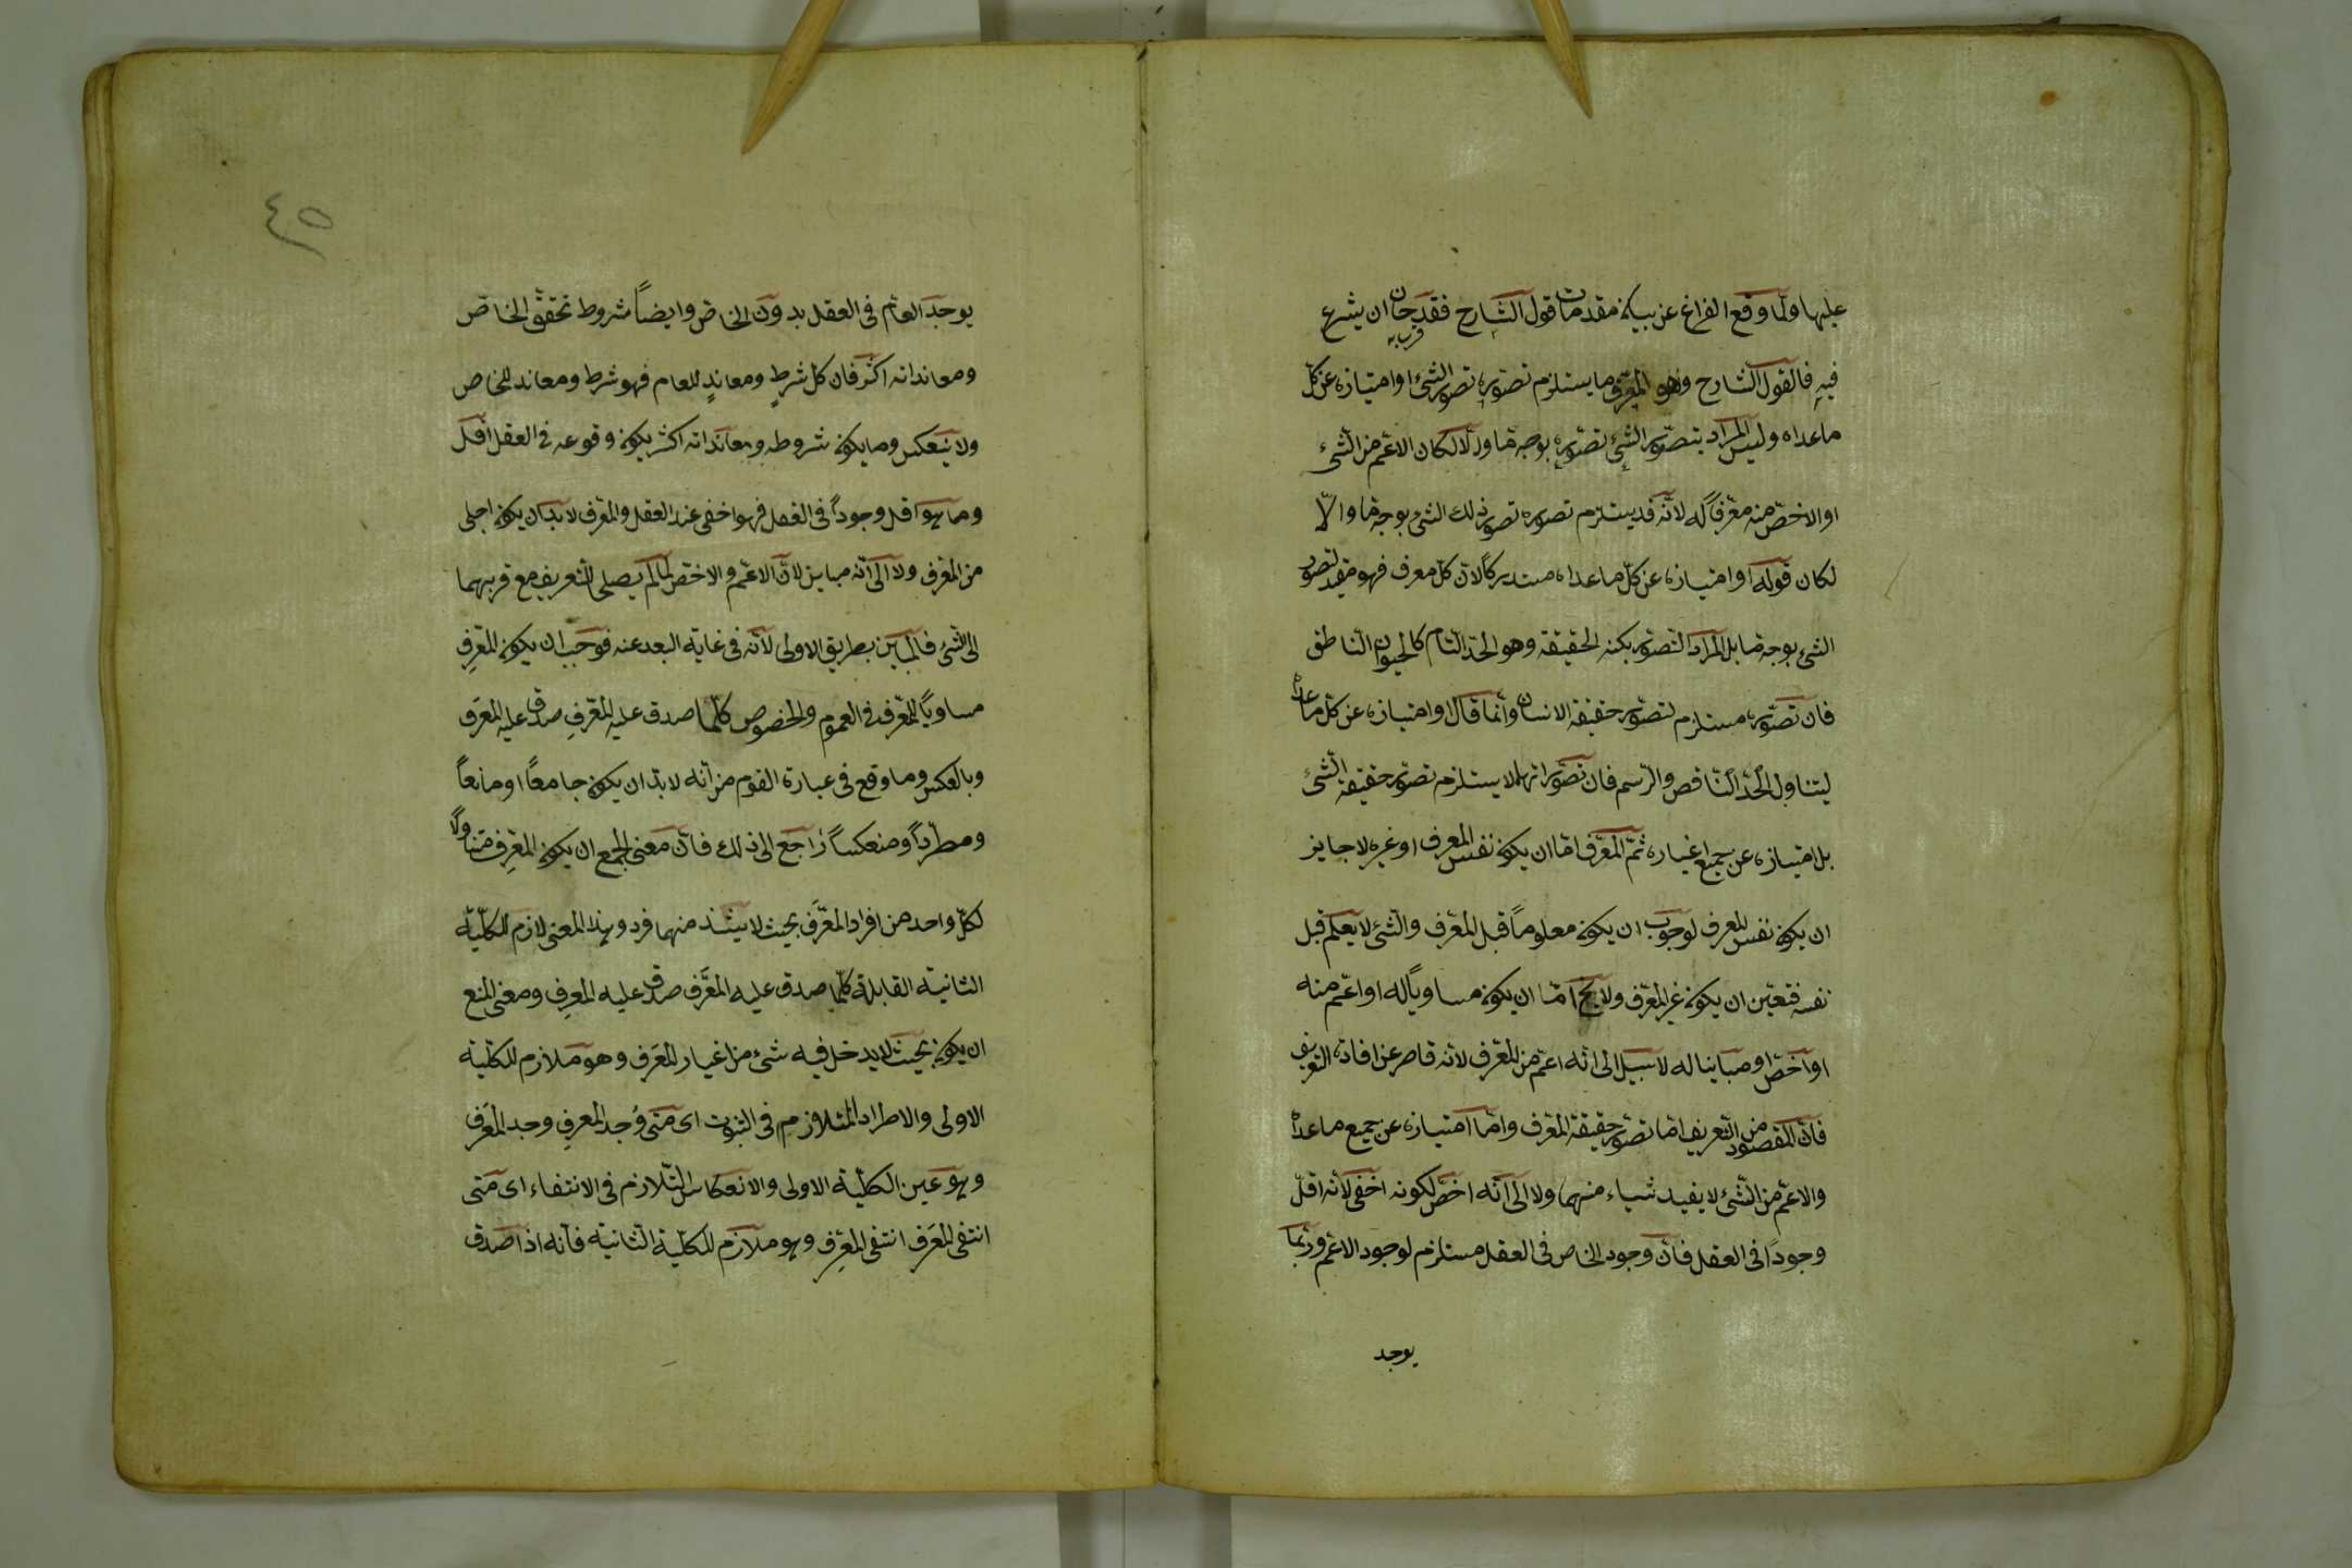 عليها ولما وقع الفراغ عن بيان مقدمات قول الشارح فقد حان ان يشرع
قرب به
فيه فالقول الشارح وهو المعرف ما يستلزم تصوره تصور الشئ او امتيازه عن كل
ما عداه وليس المراد بتصور الشئ تصوره بوجه ما والا لكان الاعم من الشئ
او الاخص منه معرفاً له لانه قد يستلزم تصوره تصور ذلك الشئ بوجه ما والا
لكان قوله او امتيازه عن كل ما عداه مستدركاً لان كل معرف فهو مقيد لتصور
الشئ بوجه ما بل المراد التصور بكنه الحقيقة وهو الحد التام كالحيوان الناطق
فان تصوره مستلزم لتصور حقيقة الانسان وانما قال او امتيازه عن كل ما عداه
ليتناول الحد الناقص والرسم فان تصوراتهما لا يستلزم تصور حقيقة الشئ
بل امتيازه عن جميع اغياره ثم المعرف اما ان يكون نفس المعرف او غيره لا جايز
ان يكون نفس المعرف لوجوب ان يكون معلوماً قبل المعرف والشئ لا يعلم قبل
نفسه فتعين ان يكون غير المعرف ولا يخ اما ان يكون مساوياً له او اعم منه
او اخص او مباينا له لا سبيل الى انه اعم من المعرف لانه قاصر عن افادة التعريف
فان المقصود من التعريف اما تصور حقيقة المعرف واما امتيازه عن جميع ما عداه
والاعم من الشئ لا يفيد شياء منهما ولا الى انه اخص لكونه اخفى لانه اقل
وجوداً فى العقل فان وجود الخاص فى العقل مستلزم لوجود الاعم وربما
يوجد
٤٥
يوجد العام فى العقل بدون الخاص وايضاً شروط تحقق الخاص
ومعانداته اكثر فان كل شرطٍ ومعاندٍ للعام فهو شرط ومعاند للخاص
ولا ينعكس وما يكون شروطه ومعانداته اكثر يكون وقوعه فى العقل اقل
وما هو اقل وجوداً فى العقل فهو اخفى عند العقل والمعرف لا بد ان يكون اجلى
من المعرف ولا الى انه مباين لان الاعم والاخص لما لم يصلحا للتعريف مع قربهما
الى الشئ فالمباين بطريق الاولى لانه فى غاية البعد عنه فوجب ان يكون المعرِف
مساوياً للمعرف فى العموم والخصوص كلما صدق عليه المعرِف صدق عليه المعرَف
وبالعكس وما وقع فى عبارة القوم من انه لا بد ان يكون جامعاً او مانعاً
ومطرداً ومنعكساً راجع الى ذلك فان معنى الجمع ان يكون المعرِف متناولاً
لكل واحد من افراد المعرَف بحيث لا يشذ منهما فرد وهذا المعنى لازم للكلية
الثانية القايلة كلما صدق عليه المعرَف صدق عليه المعرِف ومعنى المنع
ان يكون بحيث لا يدخل فيه شئ من اغيار المعرَف وهو ملازم للكلية
الاولى والاطراد المتلازم فى الثبوت اى متى وُجد المعرِف وجد المعرَف
وهو عين الكلية الاولى والانعكاس التلازم فى الانتفاء اى متى
انتفى المعَرف انتفى المعرِف وهو ملازم للكلية الثانية فانه اذا صدق